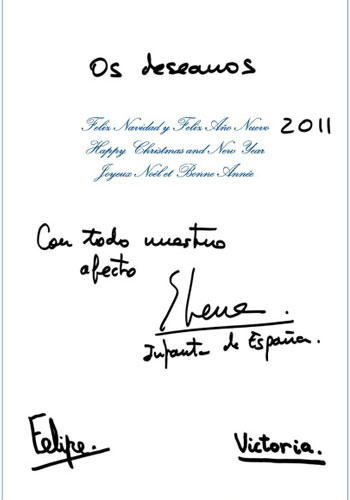 Os deseamos
Feliz Navidad y Feliz Año Nuevo 2011
Happy Christmas and New Year
Joyeux Noël et Bonne Année
Con todo nuestro
afecto
Elena.
Infanta de España.
Felipe. Victoria.